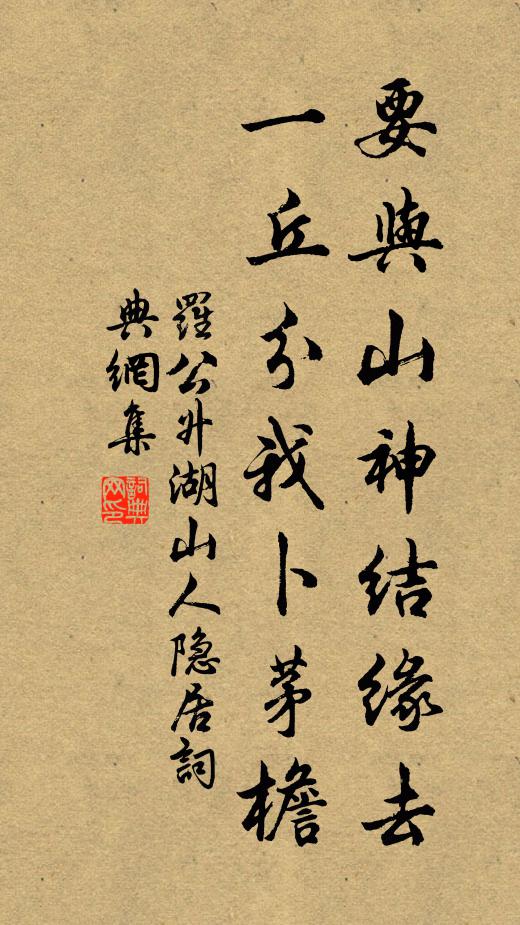 要與山神結緣去
一丘分我卜茅檐
羅公升湖山人隐居詞
典網集
詞典網印